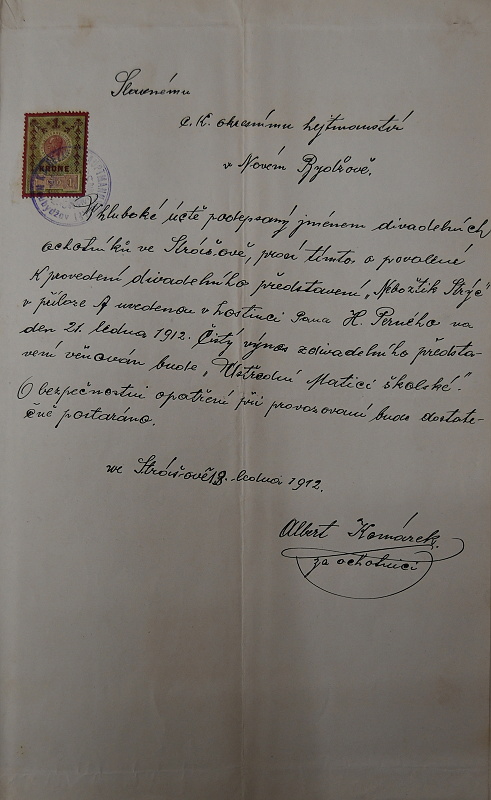 Slavnému
c. k. okresnímu hejtmanství
v Novém Bydžově.
KRONE
V hluboké úctě podepsaný jménem divadelních
ochotníků ve Stráčově, prosí tímto o povolení
k provedení divadelního představení „Nebožtík Strýc"
v příloze A uvedenou v hostinci Pana H. Perného na
den 21. ledna 1912. Čistý výnos z divadelního předsta-
vení věnován bude „Ustřední Matici školské".
O bezpečnostní opatření při provozovaní bude dostate-
čně postaráno.
ve Stráčově 8. ledna 1912.
Albert Komárek
za ochotníci